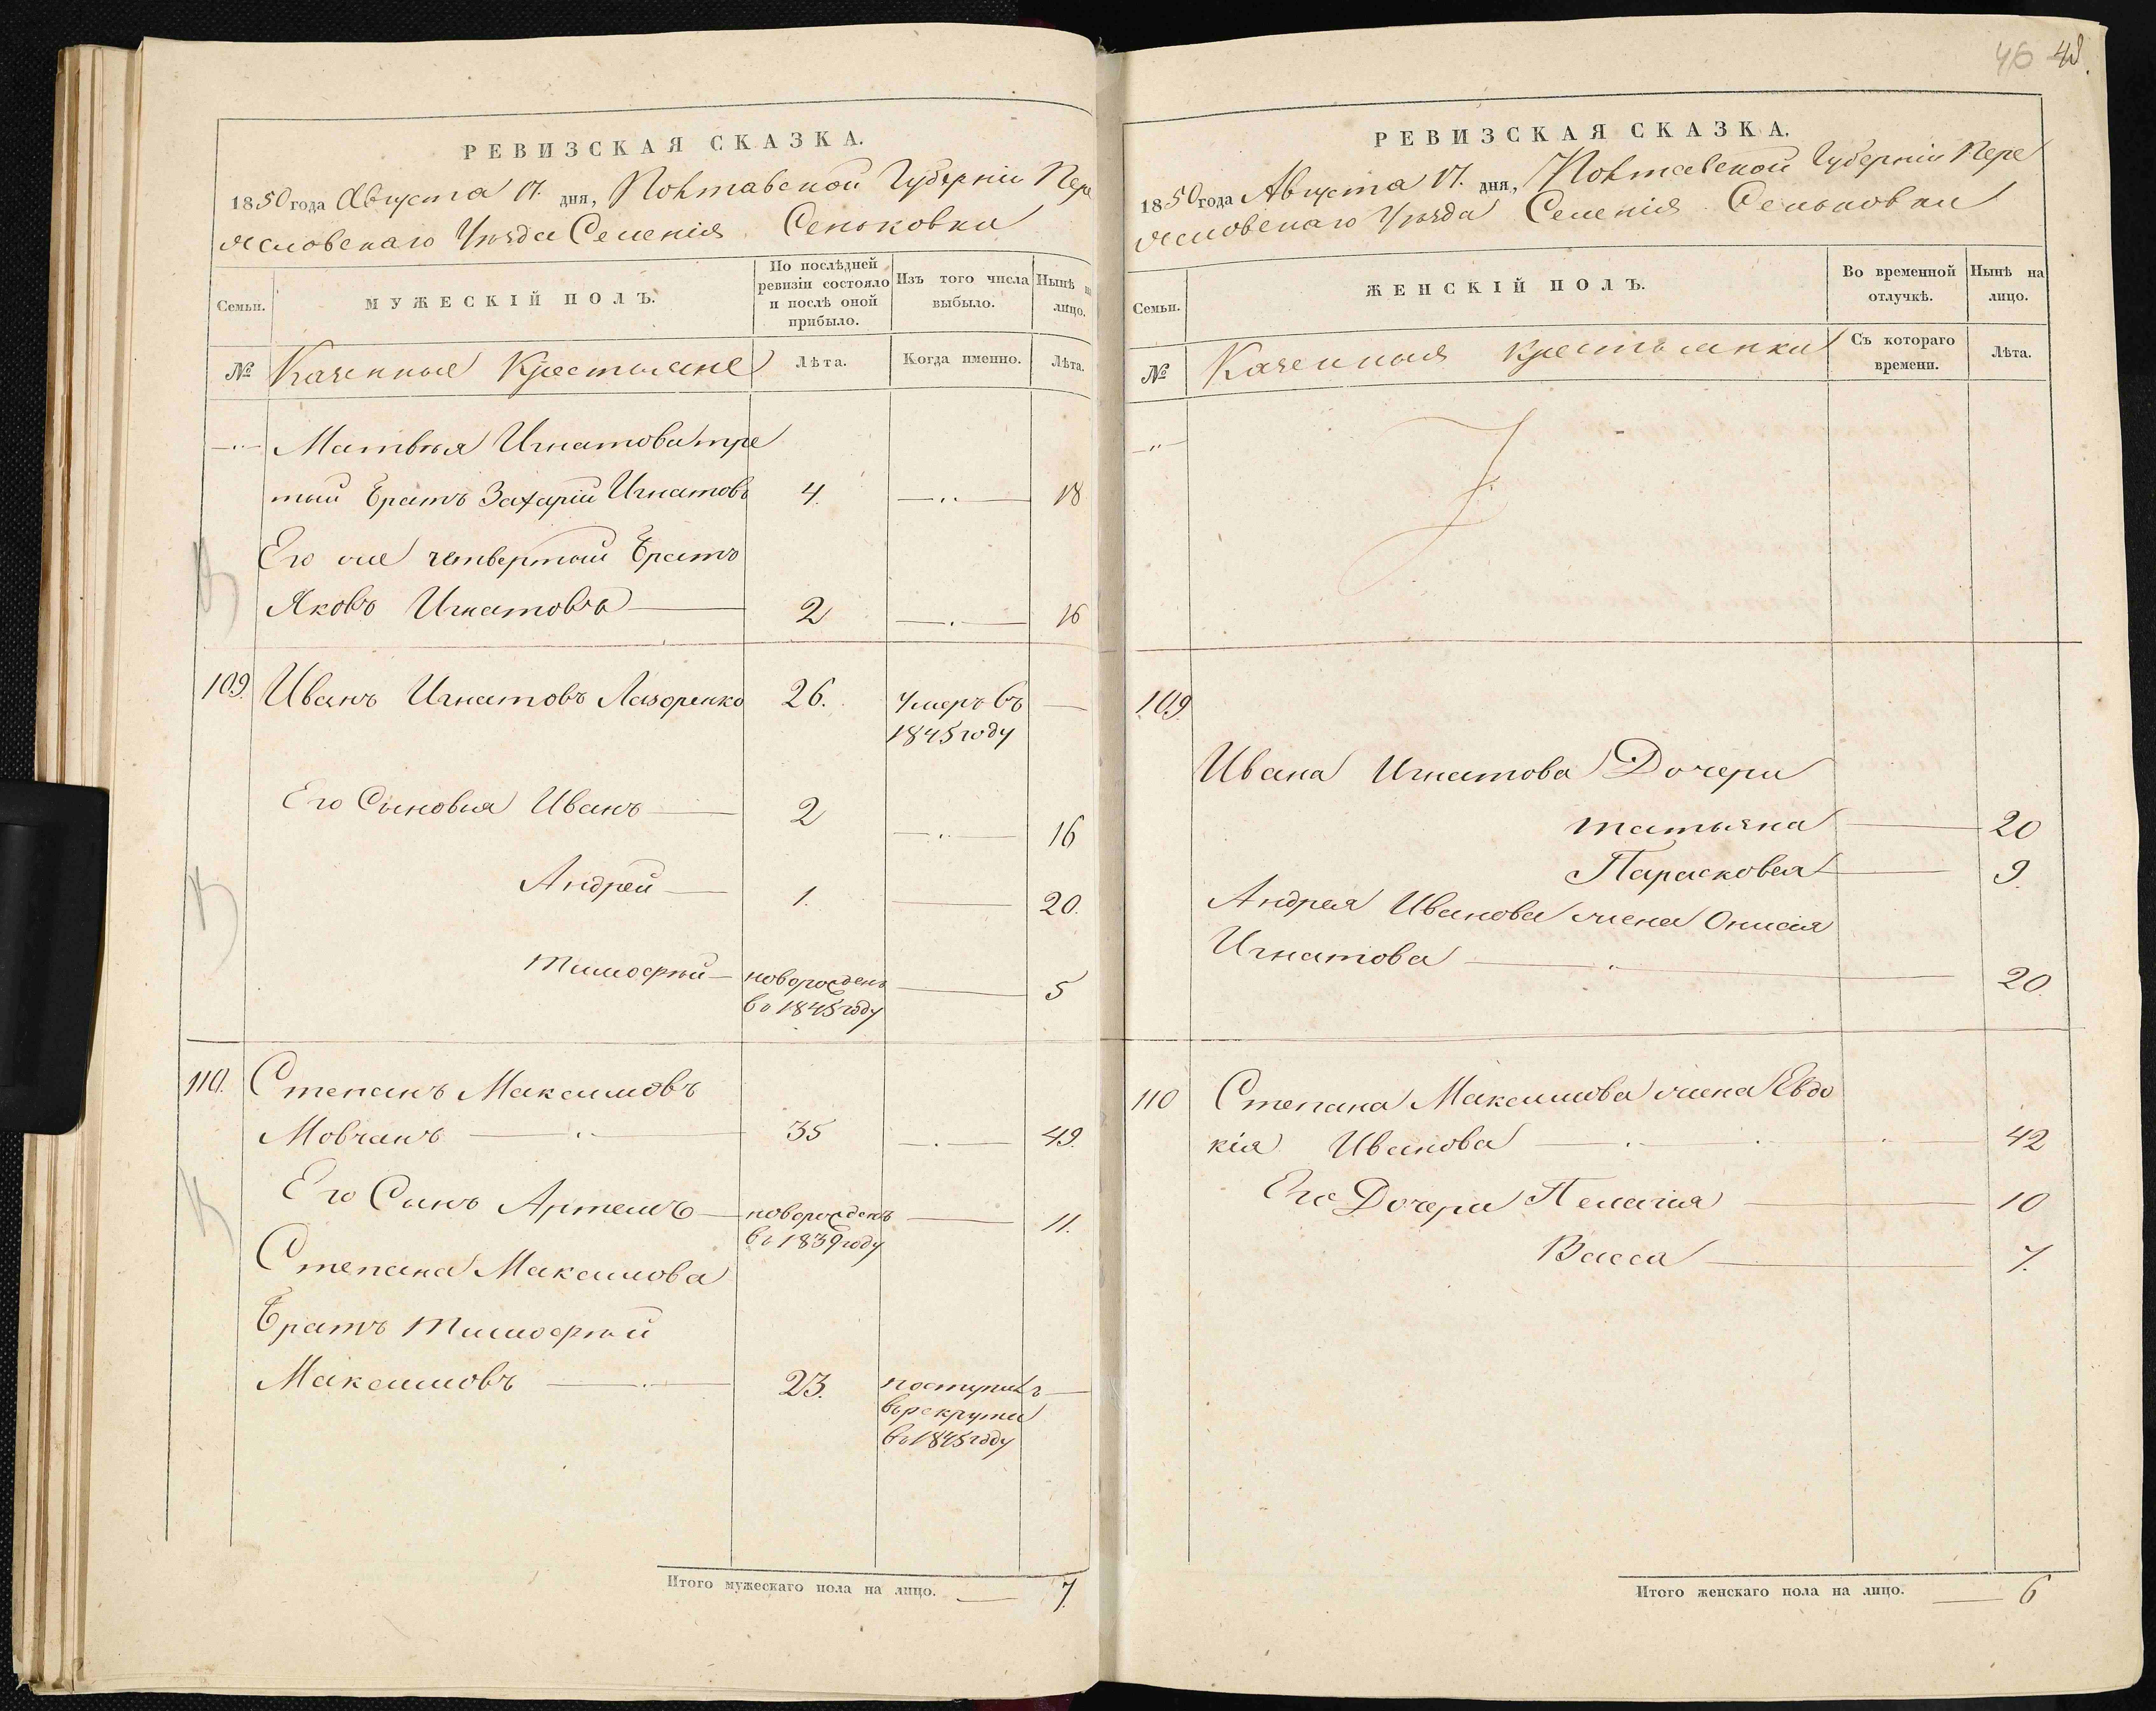 РЕВИЗСКАЯ СКАЗКА.
1850 года Августа 17. дня, Полтавской Губерніи Пере
яславскаго Уѣзда Селенія Сеньковки
Семьи.
МУЖЕСКІЙ ПОЛЪ.
По послѣдней
ревизіи состояло
и послѣ оной
прибыло.
Изъ того числа
выбыло.
Нынѣ на
лицо.
№ Казенные Крестьяне Лѣта. Когда именно. Лѣта.
Матвѣя Игнатова тре
тий братъ Захарій Игнатовъ 4. — 18
Его же четвертый братъ
Яковъ Игнатовъ — 2 — 16
109. Иванъ Игнатовъ Лазоренко 26. Умеръ въ —
1845 году
Его Сыновья Иванъ — 2 — 16
Андрей — 1. — 20.
Тимофѣй — новорожденъ — 5
въ 1845 году
110. Степанъ Максимовъ
Мовчанъ — 35 — 49.
Его Сынъ Артемъ — новорожденъ — 11.
въ 1839 году
Степана Максимова
братъ Тимофѣй
Максимовъ — 23. поступилъ —
въ рекруты
въ 1845 году
Итого мужескаго пола на лицо. — 7.
46 48.
РЕВИЗСКАЯ СКАЗКА.
1850 года Августа 17. дня, Полтавской Губерніи Пере
яславскаго Уѣзда Селенія Сеньковки
Семьи.
ЖЕНСКІЙ ПОЛЪ.
Во временной
отлучкѣ.
Нынѣ на
лицо.
№ Казенныя крестьянки
Съ котораго
времени.
Лѣта.
109.
Ивана Игнатова Дочери
Татьяна — 20
Парасковея — 9.
Андрея Иванова жена Онисія
Игнатова — 20.
110 Степана Максимова жена Евдо
кія Иванова — 42
Его Дочери Пелагія — 10
Васса — 7.
Итого женскаго пола на лицо. — 6